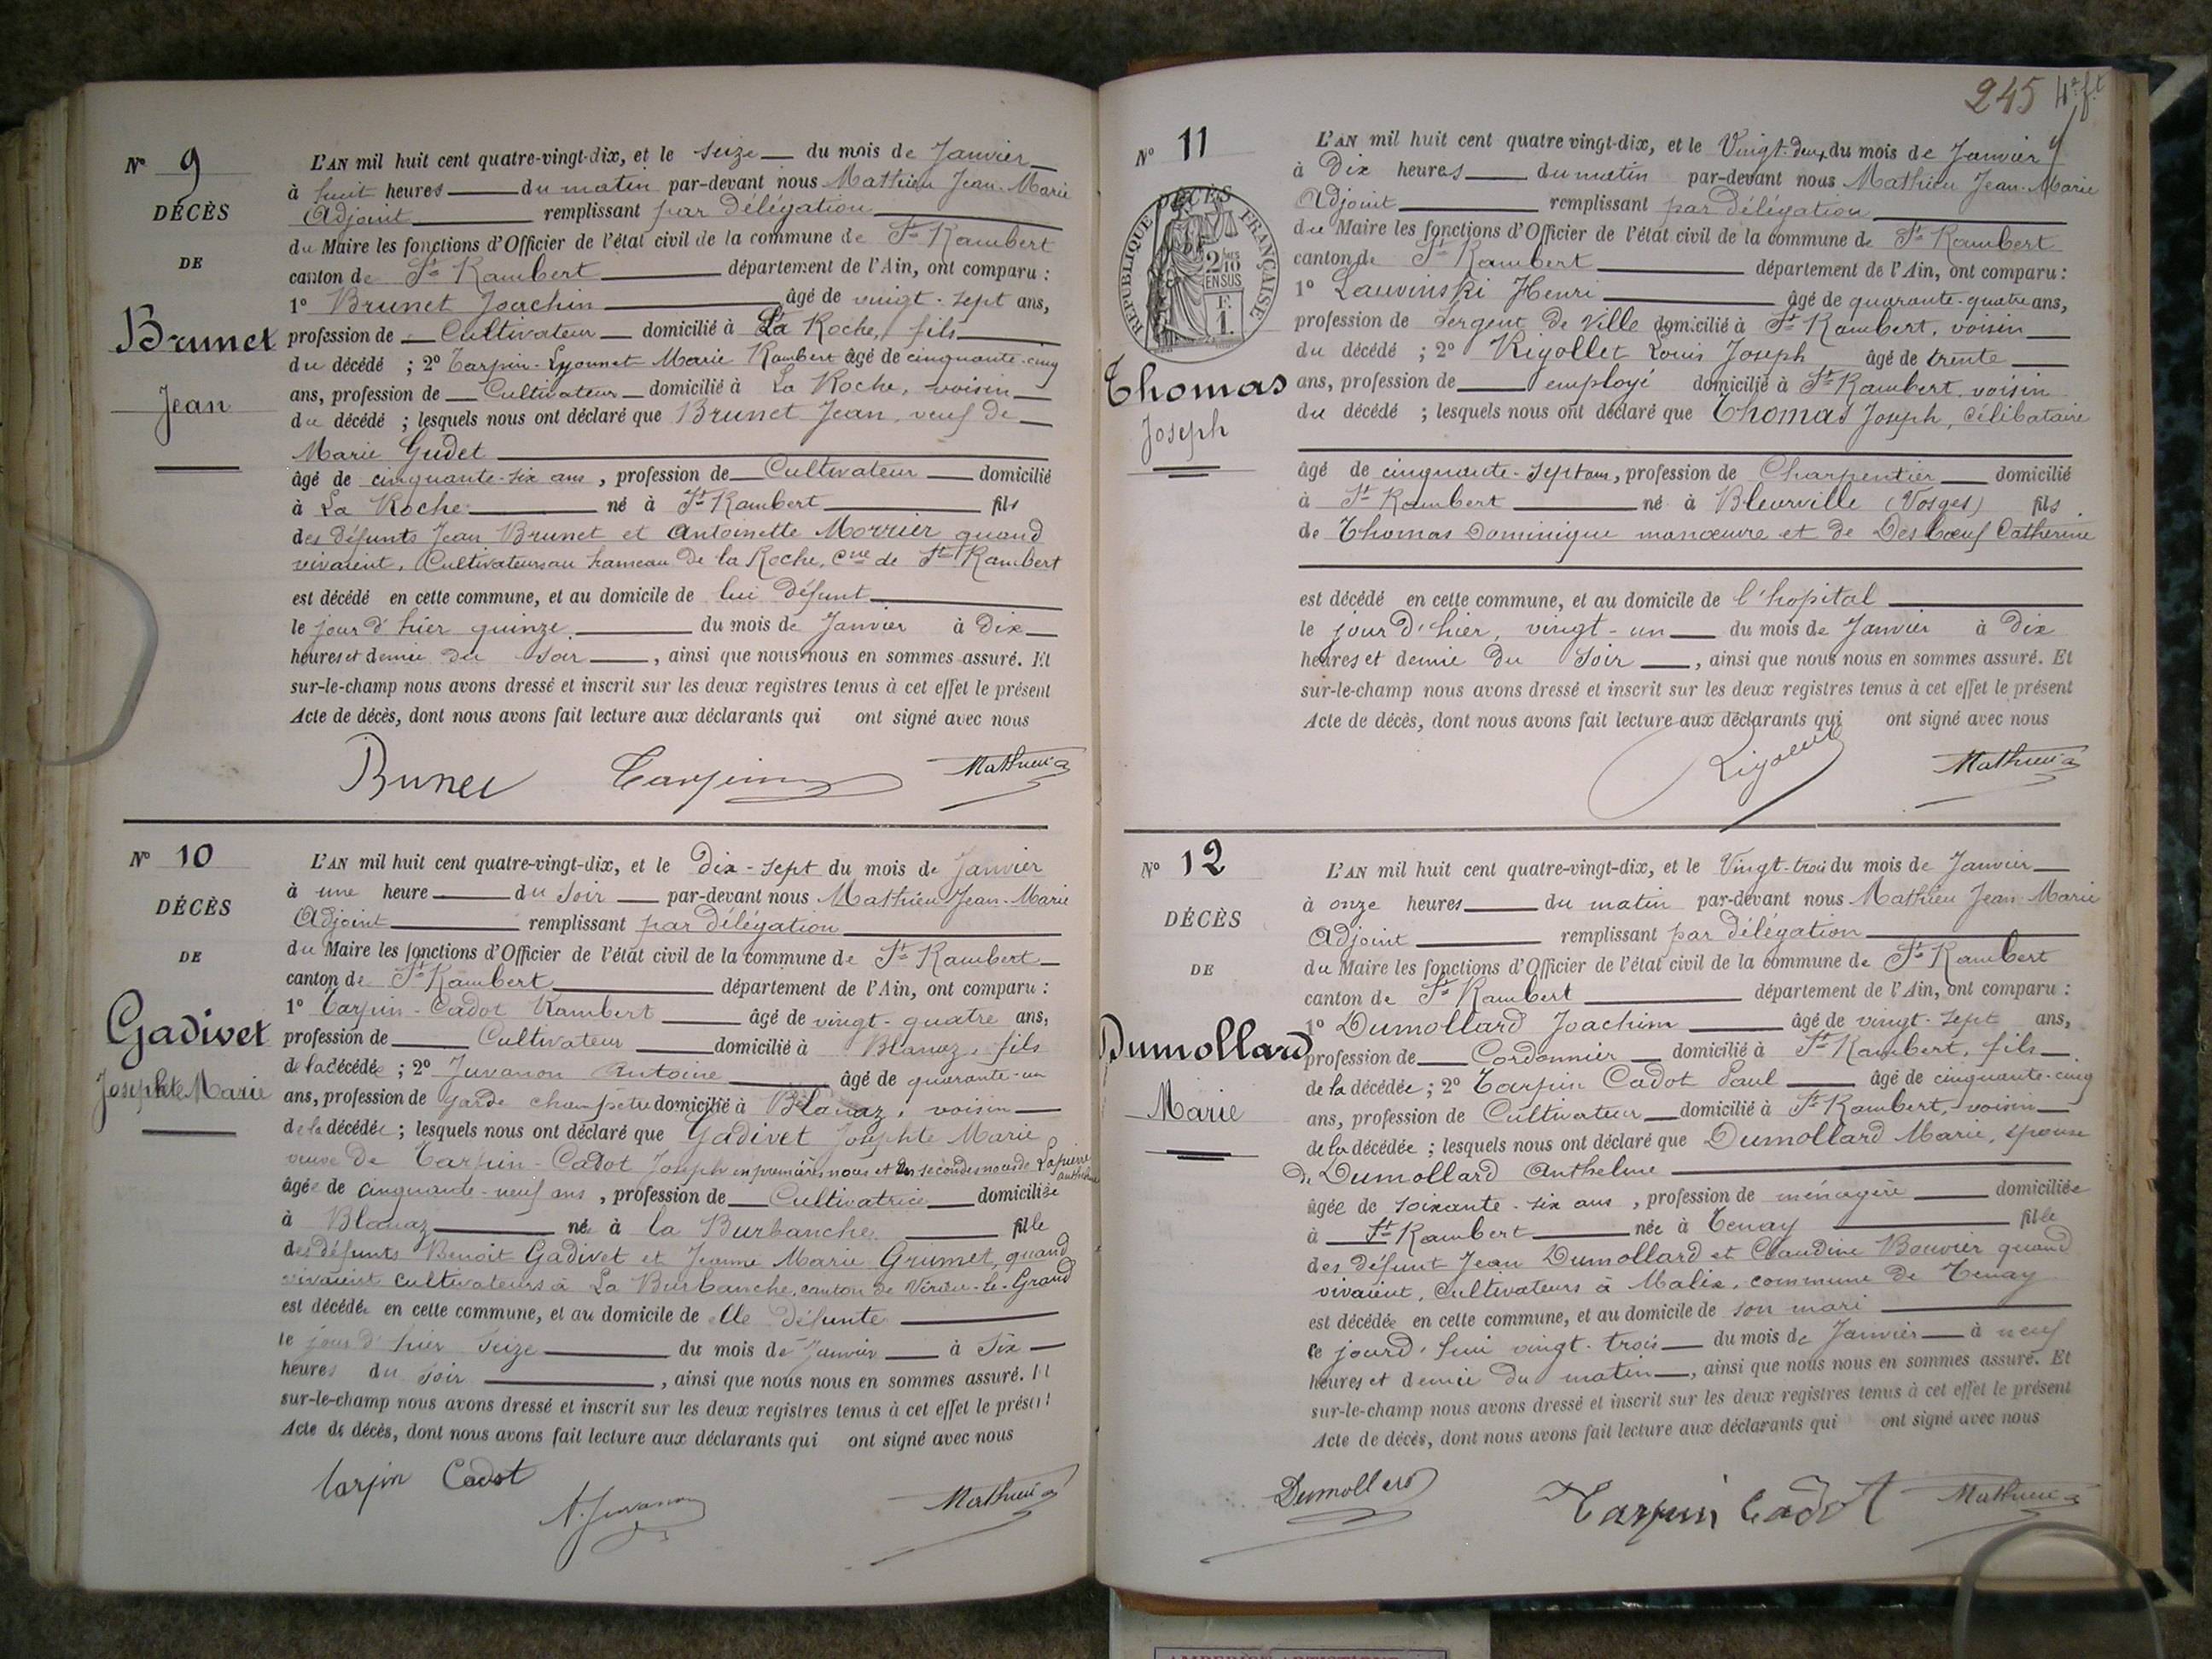 N° 9
DÉCÈS
DE
Brunet
Jean
L'AN mil huit cent quatre-vingt-dix, et le seize du mois de Janvier
à huit heures du matin par-devant nous Mathieu Jean-Marie
Adjoint remplissant par délégation
du Maire les fonctions d'Officier de l'état civil de la commune de St Rambert
canton de St Rambert département de l'Ain, ont comparu :
1° Brunet Joachin âgé de vingt-sept ans,
profession de Cultivateur domicilié à La Roche, fils
du décédé ; 2° Tarpin-Lyonnet Marie Rambert âgé de cinquante-cinq
ans, profession de Cultivateur domicilié à La Roche, voisin
du décédé ; lesquels nous ont déclaré que Brunet Jean, veuf de
Marie Gudet
âgé de cinquante-six ans, profession de Cultivateur domicilié
à La Roche né à St Rambert fils
des défunts Jean Brunet et Antoinette Morrier quand
vivaient, Cultivateurs au hameau de la Roche, cne de St Rambert
est décédé en cette commune, et au domicile de lui défunt
le jour d'hier quinze du mois de Janvier à dix
heures et demie du soir, ainsi que nous nous en sommes assuré. Et
sur-le-champ nous avons dressé et inscrit sur les deux registres tenus à cet effet le présent
Acte de décès, dont nous avons fait lecture aux déclarants qui ont signé avec nous
Brunet Tarpin Mathieu
N° 10
DÉCÈS
DE
Gadivet
Josephte Marie
L'AN mil huit cent quatre-vingt-dix, et le Dix-sept du mois de Janvier
à une heure du soir par-devant nous Mathieu Jean-Marie
Adjoint remplissant par délégation
du Maire les fonctions d'Officier de l'état civil de la commune de St Rambert
canton de St Rambert département de l'Ain, ont comparu :
1° Tarpin-Cadot Rambert âgé de vingt-quatre ans,
profession de Cultivateur domicilié à Blanaz, fils
de la décédée ; 2° Juvanon Antoine âgé de quarante-un
ans, profession de garde champêtre domicilié à Blanaz, voisin
de la décédée ; lesquels nous ont déclaré que Gadivet Josephte Marie
veuve de Tarpin-Cadot Joseph en premières noces et en secondes noces de Lapierre Anthelme
âgée de cinquante-neuf ans, profession de Cultivatrice domiciliée
à Blanaz née à la Burbanche fille
des défunts Benoit Gadivet et Jeanne Marie Grumet, quand
vivaient cultivateurs à La Burbanche, canton de Virieu-le-Grand
est décédée en cette commune, et au domicile de elle défunte
le jour d'hier seize du mois de Janvier à six
heures du soir, ainsi que nous nous en sommes assuré. Et
sur-le-champ nous avons dressé et inscrit sur les deux registres tenus à cet effet le présent
Acte de décès, dont nous avons fait lecture aux déclarants qui ont signé avec nous
Tarpin Cadot A. Juvanon Mathieu
245
N° 11
DÉCÈS
RÉPUBLIQUE FRANÇAISE
2/10 EN SUS
1 F.
Thomas
Joseph
L'AN mil huit cent quatre vingt-dix, et le Vingt-deux du mois de Janvier
à Dix heures du matin par-devant nous Mathieu Jean-Marie
Adjoint remplissant par délégation
du Maire les fonctions d'Officier de l'état civil de la commune de St Rambert
canton de St Rambert département de l'Ain, ont comparu :
1° Lauvinski Henri âgé de quarante-quatre ans,
profession de sergent de ville domicilié à St Rambert, voisin
du décédé ; 2° Rigollet Louis Joseph âgé de trente
ans, profession de employé domicilié à St Rambert voisin
du décédé ; lesquels nous ont déclaré que Thomas Joseph, célibataire
âgé de cinquante-sept ans, profession de Charpentier domicilié
à St Rambert né à Bleurville (Vosges) fils
de Thomas Dominique manœuvre et de Desbœuf Catherine
est décédé en cette commune, et au domicile de l'hopital
le jour d'hier, vingt-un du mois de Janvier à dix
heures et demie du soir, ainsi que nous nous en sommes assuré. Et
sur-le-champ nous avons dressé et inscrit sur les deux registres tenus à cet effet le présent
Acte de décès, dont nous avons fait lecture aux déclarants qui ont signé avec nous
Rigollet Mathieu
N° 12
DÉCÈS
DE
Dumollard
Marie
L'AN mil huit cent quatre-vingt-dix, et le Vingt-trois du mois de Janvier
à onze heures du matin par-devant nous Mathieu Jean-Marie
Adjoint remplissant par délégation
du Maire les fonctions d'Officier de l'état civil de la commune de St Rambert
canton de St Rambert département de l'Ain, ont comparu :
1° Dumollard Joachim âgé de vingt-sept ans,
profession de Cordonnier domicilié à St Rambert, fils
de la décédée ; 2° Tarpin Cadot Paul âgé de cinquante-cinq
ans, profession de Cultivateur domicilié à St Rambert, voisin
de la décédée ; lesquels nous ont déclaré que Dumollard Marie, épouse
de Dumollard Anthelme
âgée de soixante-six ans, profession de ménagère domiciliée
à St Rambert née à Tenay fille
des défunt Jean Dumollard et Claudine Bouvier quand
vivaient, cultivateurs à Malix, commune de Tenay
est décédée en cette commune, et au domicile de son mari
ce jourd'hui vingt-trois du mois de Janvier à neuf
heures et demie du matin, ainsi que nous nous en sommes assuré. Et
sur-le-champ nous avons dressé et inscrit sur les deux registres tenus à cet effet le présent
Acte de décès, dont nous avons fait lecture aux déclarants qui ont signé avec nous
Dumollard Tarpin Cadot Mathieu